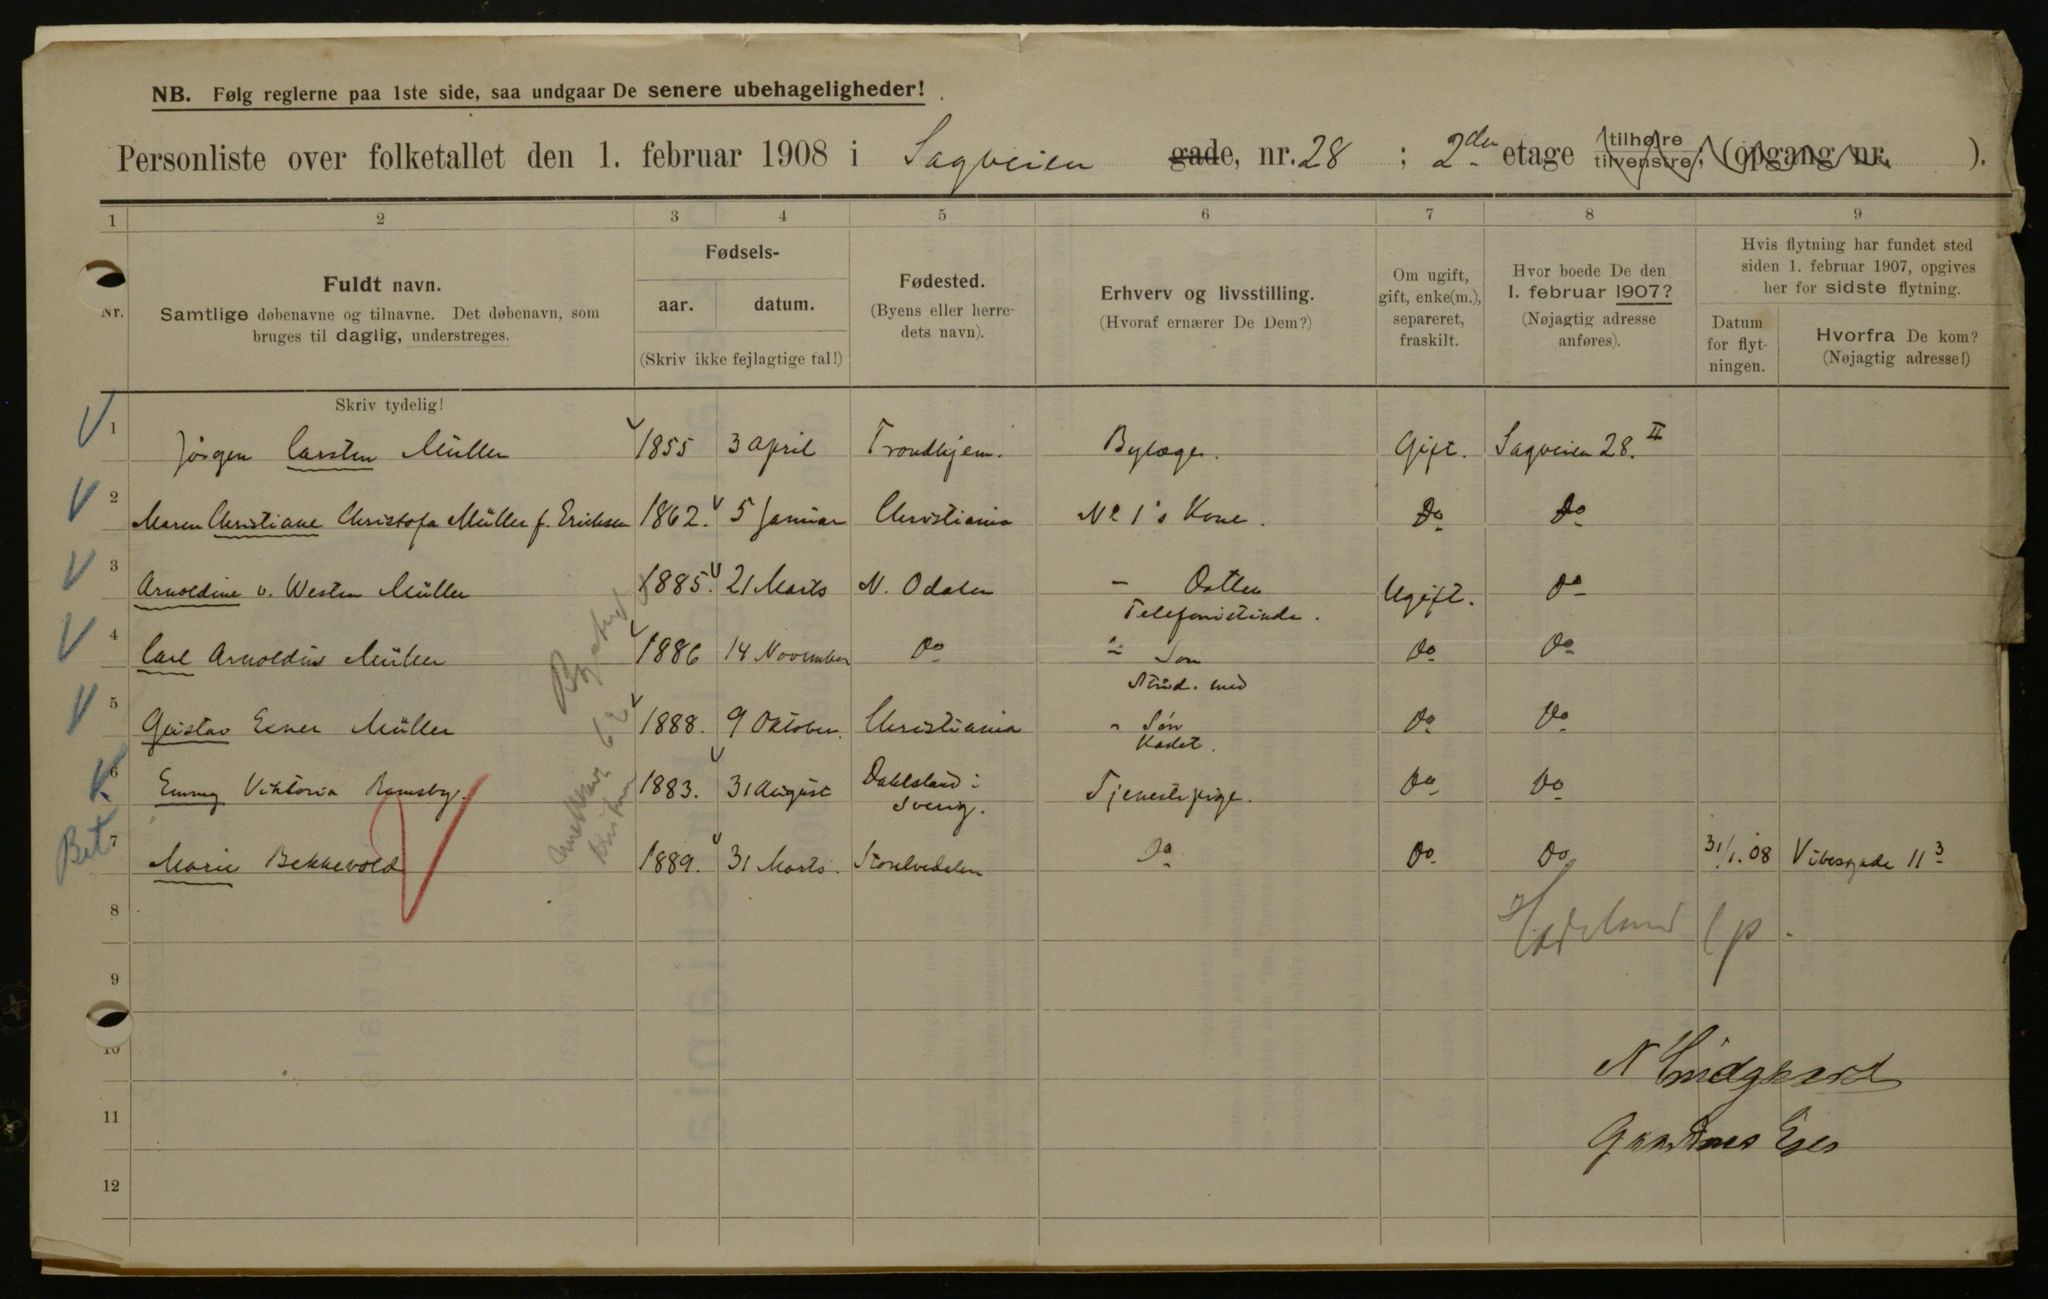 NB. Følg reglerne paa 1ste side, saa undgaar De senere ubehageligheder!
Personliste over folketallet den 1. februar 1908 i Sagveien gade, nr. 28 ; 2den etage tilhøire tilvenstre, (opgang nr. ).
1 2 3 4 5 6 7 8 9
Nr.
Fuldt navn.
Samtlige døbenavne og tilnavne. Det døbenavn, som
bruges til daglig, understreges.
Fødsels-
aar. datum.
(Skriv ikke fejlagtige tal!)
Fødested.
(Byens eller herre-
dets navn).
Erhverv og livsstilling.
(Hvoraf ernærer De Dem?)
Om ugift,
gift, enke(m.),
separeret,
fraskilt.
Hvor boede De den
1. februar 1907?
(Nøjagtig adresse
anføres).
Hvis flytning har fundet sted
siden 1. februar 1907, opgives
her for sidste flytning.
Datum
for flyt-
ningen.
Hvorfra De kom?
(Nøjagtig adresse!)
Skriv tydelig!
1 Jørgen Carsten Müller 1855 3 april Trondhjem. Bylæge. Gift. Sagveien 28. II
2 Maren Christiane Christofa Müller f. Eriksen 1862. 5 Januar Christiania No 1's Kone. Do Do
3 Arnoldine v. Westen Müller 1885. 21 Marts N. Odalen — Datter Ugift. Do
Telefonistinde.
4 Carl Arnoldus Müller 1886 14 November Do — Søn Do Do
Stud. med
5 Gustav Exner Müller 1888. 9 Oktober. Christiania - Søn Do Do
Kadet.
6 Emmy Viktoria Ramsby. 1883. 31 August Dahlsland i Tjenestepige. Do Do
Sverig.
7 Marie Bekkevold 1889. 31 Marts. Storelvedalen Do Do Do 31/1. 08 Vibesgade 11 3
K.
Bet
8
Hadeland
9
10
N Lindgaard
11
12